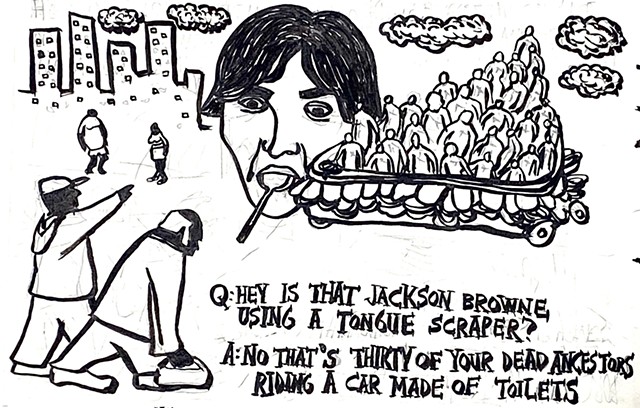 Q: HEY IS THAT JACKSON BROWNE,
USING A TONGUE SCRAPER?
A: NO THAT'S THIRTY OF YOUR DEAD ANCESTORS
RIDING A CAR MADE OF TOILETS